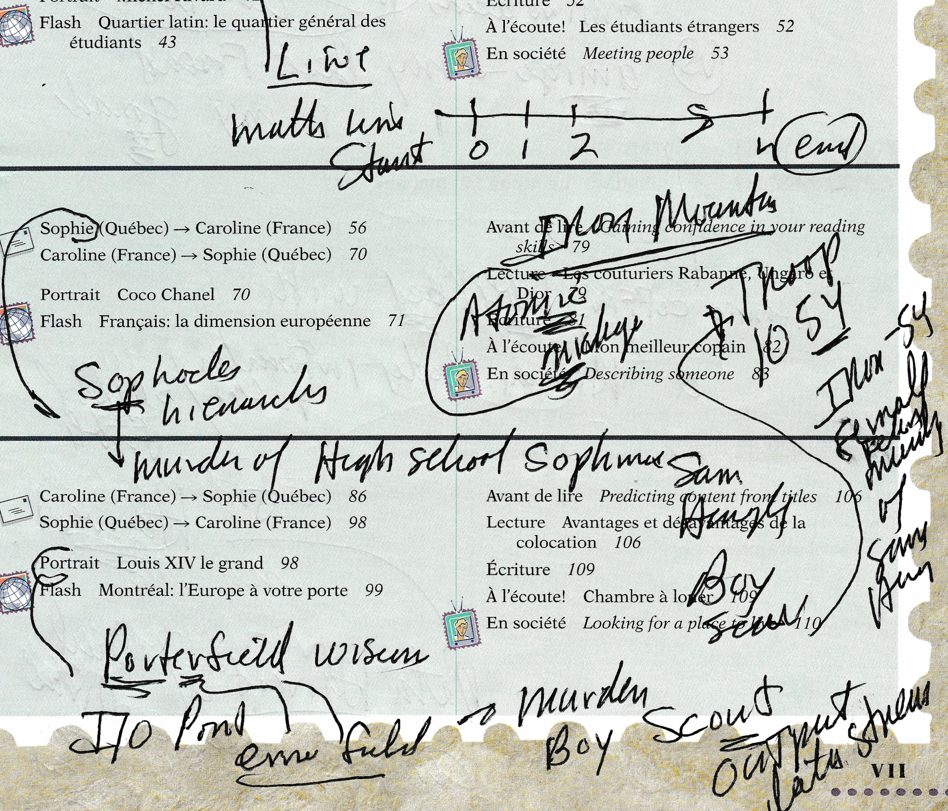 Flash Quartier latin: le quartier général des
étudiants 43
Écriture 52
À l'écoute! Les étudiants étrangers 52
En société Meeting people 53
Line
math line
Start 0 1 2 n end
Sophie (Québec) → Caroline (France) 56
Caroline (France) → Sophie (Québec) 70
Portrait Coco Chanel 70
Flash Français: la dimension européenne 71
Avant de lire Gaining confidence in your reading
skills 79
Lecture Les couturiers Rabanne, Ungaro et
Dior 79
Écriture 81
À l'écoute! Mon meilleur copain 82
En société Describing someone 83
Iron Mountain
Atomic
Troop
10 54
Iron - 54
Sophocles
hierarchs
murder of High school Sophmore
Sam
Boy
Scout
of
Sam
Caroline (France) → Sophie (Québec) 86
Sophie (Québec) → Caroline (France) 98
Portrait Louis XIV le grand 98
Flash Montréal: l'Europe à votre porte 99
Avant de lire Predicting content from titles 106
Lecture Avantages et désavantages de la
colocation 106
Écriture 109
À l'écoute! Chambre à louer 109
En société Looking for a place to live 110
Porterfield
I/O Port
field → Murder
Boy Scout
Output
VII